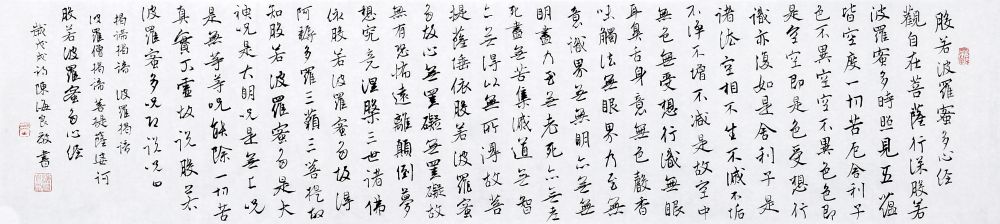 般若波羅蜜多心經
觀自在菩薩行深般若
波羅蜜多時照見五蘊
皆空度一切苦厄舍利子
色不異空空不異色色即
是空空即是色受想行
識亦復如是舍利子是
諸法空相不生不滅不垢
不淨不增不減是故空中
無色無受想行識無眼
耳鼻舌身意無色聲香
味觸法無眼界乃至無
意識界無無明亦無無
明盡乃至無老死亦無老
死盡無苦集滅道無智
亦無得以無所得故菩
提薩埵依般若波羅蜜
多故心無罣礙無罣礙故
無有恐怖遠離顛倒夢
想究竟涅槃三世諸佛
依般若波羅蜜多故得
阿耨多羅三藐三菩提故
知般若波羅蜜多是大
神咒是大明咒是無上咒
是無等等咒能除一切苦
真實不虛故說般若
波羅蜜多咒即說咒曰
揭諦揭諦 波羅揭諦
波羅僧揭諦菩提薩婆訶
般若波羅蜜多心經
歲戊戌 陳海良敬書